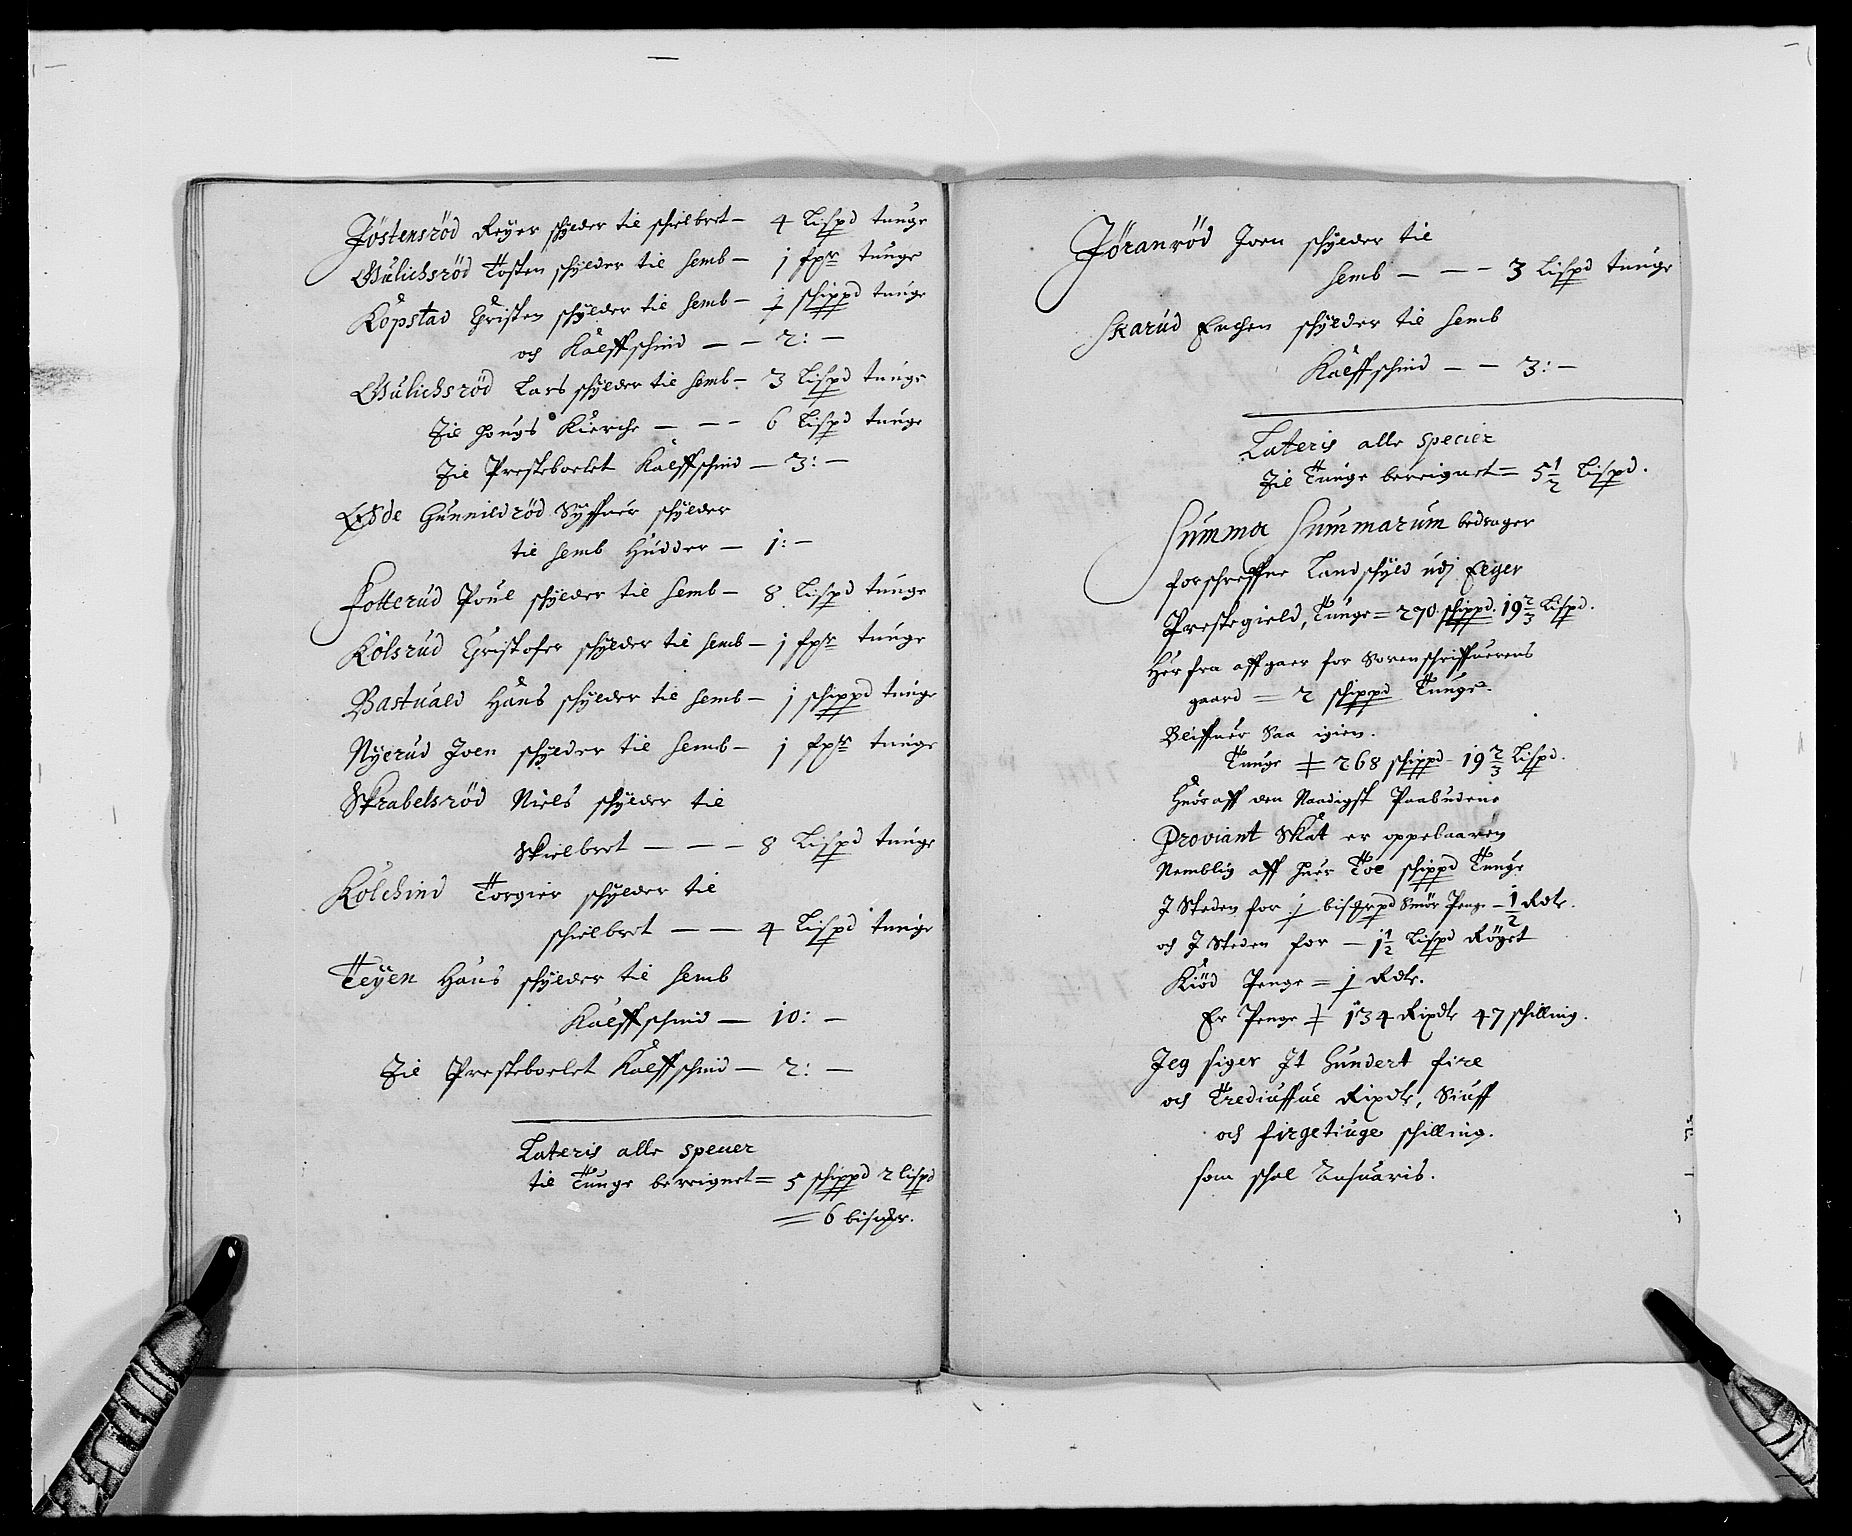 Jöstensröd Reyer schylder til schielbret – 4 Lispd tunge
Gulichsröd Tosten schylder til Semb – j fpr tunge
Kopstad Christen schylder til Semb – j schippd tunge
och Kalffschind – – 2: –
Gulichsröd Lars schylder til Semb – 3 Lispd tunge
Til Hougs Kierche – – – 6 Lispd tunge
Til Presteboelet Kalffschind – 3: –
Øde Gunnildröd Syffuer schylder
til Semb Hudder – 1: –
Fotterud Poul schylder til Semb – 8 Lispd tunge
Kolsrud Christofer schylder til Semb – j fpr tunge
Bastuald Hans schylder til Semb – j schippd tunge
Nyerud Joen schylder til Semb – j fpr tunge
Skrabelsröd Niels schylder til
Skielbret – – – 8 Lispd tunge
Kolchind Torgier schylder til
schielbret – – 4 Lispd tunge
Teyen Hans schylder til Semb
Kalffschind – 10: –
Til Presteboelet Kalffschind – 2: –
Lateris alle specier
til Tunge bereignet = 5 schippd 2 lispd
= 6 bismr.
Jöranröd Joen schylder til
Semb – – – 3 Lispd tunge
Skarud Enchen schylder til Semb
Kalffschind – – 3: –
Lateris alle specier
Til Tunge bereignet = 5 1/2 Lispd.
Summa Summarum bedrager
forschreffne Landschyld udj Eger
Prestegield, Tunge = 270 schippd. 19 2/3 Lispd.
Herfra affgaer for Sorenschriffuerens
gaard = 2 schippd Tunge.
Bliffuer Saa igien.
Tunge = 268 schippd – 19 2/3 Lispd.
Huoraff den Naadigst Paabudene
Proviant Skat er oppebaaren
Nemblig aff huer Toe schippd Tunge
J Steden for j bismrpd Smör Penge – 1/2 Rdr.
och J Steden for – 1 1/2 Lispd Röget
Kiöd Penge = j Rdr.
Er Penge = 134 Rixdr 47 schilling.
Jeg siger Jt Hundert fire
och Trediuffue Rixdr, Siuff
och firgetiuge schilling.
som schal Ansuaris.